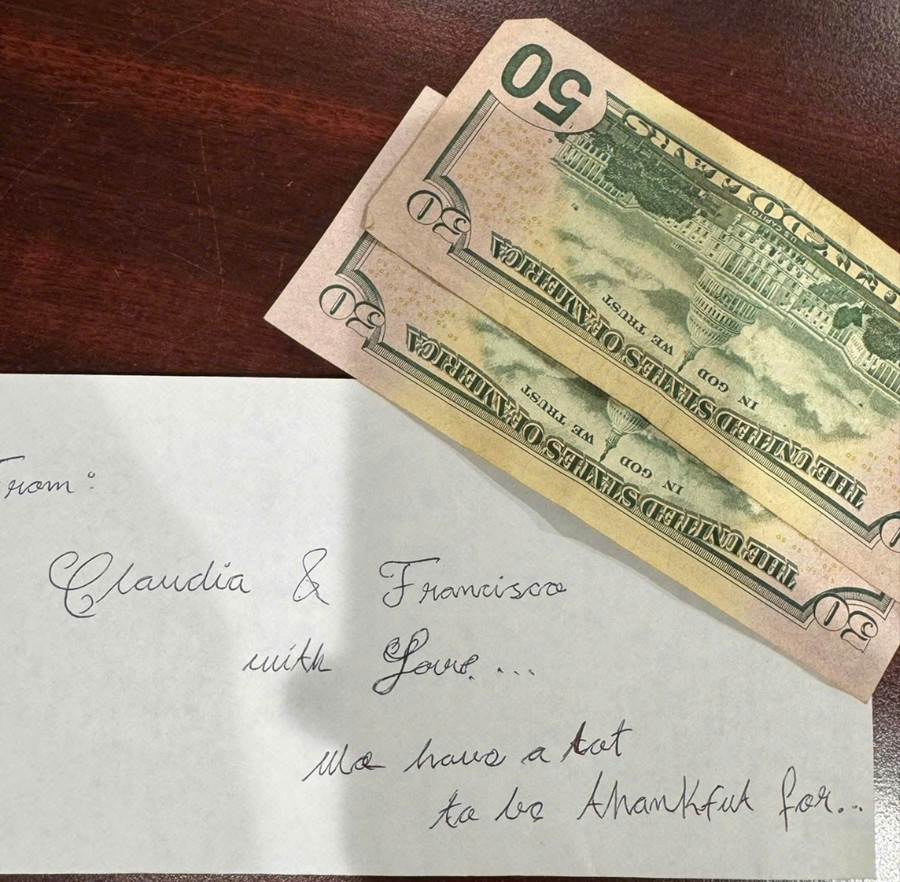 50
FIFTY DOLLARS
U.S. CAPITOL
50
THE UNITED STATES OF AMERICA
IN GOD
WE TRUST
50
THE UNITED STATES OF AMERICA
IN GOD
WE TRUST
50
From:
Claudia & Francisco
with Love...
We have a lot
to be thankful for...